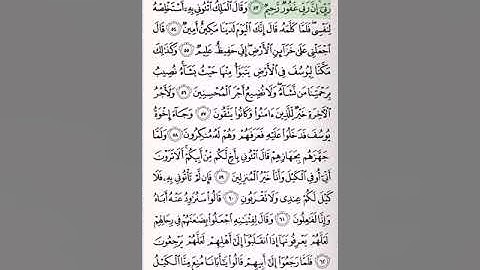 رَبِّيٓ إِنَّ رَبِّي غَفُورٌ رَّحِيمٌ ٥٣ وَقَالَ ٱلْمَلِكُ ٱئْتُونِي بِهِۦٓ أَسْتَخْلِصْهُ
لِنَفْسِي فَلَمَّا كَلَّمَهُۥ قَالَ إِنَّكَ ٱلْيَوْمَ لَدَيْنَا مَكِينٌ أَمِينٌ ٥٤ قَالَ
ٱجْعَلْنِي عَلَىٰ خَزَآئِنِ ٱلْأَرْضِ إِنِّي حَفِيظٌ عَلِيمٌ ٥٥ وَكَذَٰلِكَ
مَكَّنَّا لِيُوسُفَ فِي ٱلْأَرْضِ يَتَبَوَّأُ مِنْهَا حَيْثُ يَشَآءُ نُصِيبُ
بِرَحْمَتِنَا مَن نَّشَآءُ وَلَا نُضِيعُ أَجْرَ ٱلْمُحْسِنِينَ ٥٦ وَلَأَجْرُ
ٱلْأَخِرَةِ خَيْرٌ لِّلَّذِينَ ءَامَنُوا۟ وَكَانُوا۟ يَتَّقُونَ ٥٧ وَجَآءَ إِخْوَةُ
يُوسُفَ فَدَخَلُوا۟ عَلَيْهِ فَعَرَفَهُمْ وَهُمْ لَهُۥ مُنكِرُونَ ٥٨ وَلَمَّا
جَهَّزَهُم بِجَهَازِهِمْ قَالَ ٱئْتُونِي بِأَخٍ لَّكُم مِّنْ أَبِيكُمْ أَلَا تَرَوْنَ
أَنِّيٓ أُوفِي ٱلْكَيْلَ وَأَنَا۠ خَيْرُ ٱلْمُنزِلِينَ ٥٩ فَإِن لَّمْ تَأْتُونِي بِهِۦ فَلَا
كَيْلَ لَكُمْ عِندِي وَلَا تَقْرَبُونِ ٦٠ قَالُوا۟ سَنُرَٰوِدُ عَنْهُ أَبَاهُ
وَإِنَّا لَفَٰعِلُونَ ٦١ وَقَالَ لِفِتْيَٰنِهِ ٱجْعَلُوا۟ بِضَٰعَتَهُمْ فِي رِحَالِهِمْ
لَعَلَّهُمْ يَعْرِفُونَهَآ إِذَا ٱنقَلَبُوٓا۟ إِلَىٰٓ أَهْلِهِمْ لَعَلَّهُمْ يَرْجِعُونَ
٦٢ فَلَمَّا رَجَعُوٓا۟ إِلَىٰٓ أَبِيهِمْ قَالُوا۟ يَٰٓأَبَانَا مُنِعَ مِنَّا ٱلْكَيْلُ